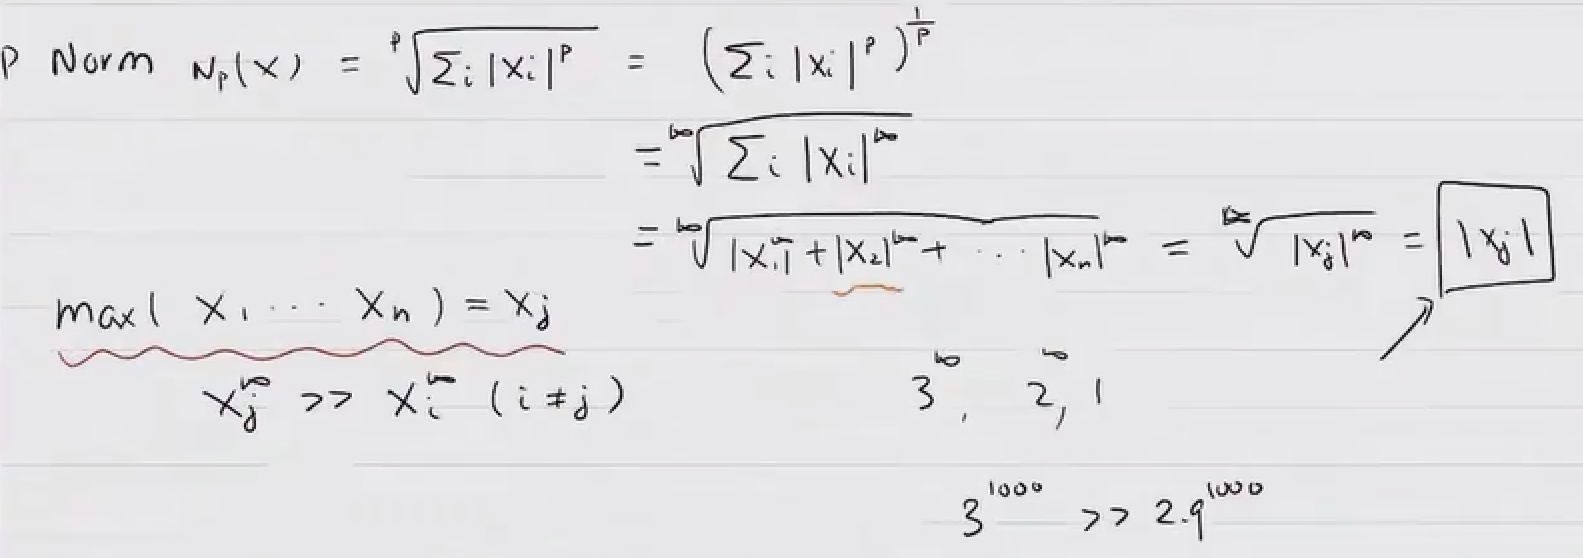 P Norm Nₚ(X) = ᵖ√(Σᵢ |Xᵢ|ᵖ) = (Σᵢ |Xᵢ|ᵖ)^(1/P)
= ^∞√(Σᵢ |Xᵢ|^∞)
= ^∞√(|X₁|^∞ + |X₂|^∞ + ··· |Xₙ|^∞) = ^∞√(|Xⱼ|^∞) = |Xⱼ|
max( X₁ ··· Xₙ ) = Xⱼ
Xⱼ^∞ >> Xᵢ^∞ ( i ≠ j )
3^∞, 2^∞, 1
3^1000 >> 2.9^1000